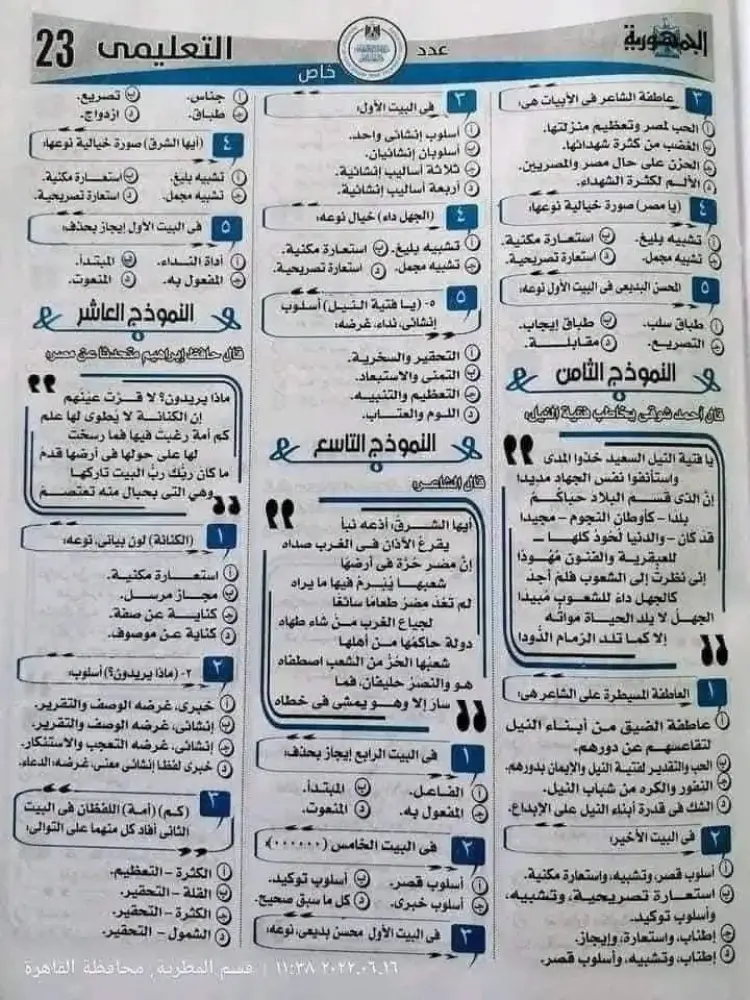 الجمهورية
عدد
خاص
التعليمى
23
٣ عاطفة الشاعر فى الأبيات هى:
أ الحب لمصر وتعظيم منزلتها.
ب الغضب من كثرة شهدائها.
ج الحزن على حال مصر والمصريين.
د الألم لكثرة الشهداء.
٤ (يا مصر) صورة خيالية نوعها:
أ تشبيه بليغ. ب استعارة مكنية.
ج تشبيه مجمل. د استعارة تصريحية.
٥ المحسن البديعى فى البيت الأول نوعه:
أ طباق سلب. ب طباق إيجاب.
ج التصريع. د مقابلة.
النموذج الثامن
قال أحمد شوقى يخاطب فتية النيل:
يا فتية النيل السعيد خذوا المدى
واستأنفوا نفس الجهاد مديدا
إن الذى قسم البلاد حباكم
بلدا - كأوطان النجوم - مجيدا
قد كان - والدنيا لحود كلها -
للعبقرية والفنون مهودا
إنى نظرت إلى الشعوب فلم أجد
كالجهل داء للشعوب مبيدا
الجهل لا يلد الحياة مواته
إلا كما تلد الرمام الدودا
١ العاطفة المسيطرة على الشاعر هى:
أ عاطفة الضيق من أبناء النيل
لتقاعسهم عن دورهم.
ب الحب والتقدير لفتية النيل والإيمان بدورهم.
ج النفور والكره من شباب النيل.
د الشك فى قدرة أبناء النيل على الإبداع.
٢ فى البيت الأخير:
أ أسلوب قصر، وتشبيه، واستعارة مكنية.
ب استعارة تصريحية، وتشبيه،
وأسلوب توكيد.
ج إطناب، واستعارة، وإيجاز.
د إطناب، وتشبيه، وأسلوب قصر.
٣ فى البيت الأول:
أ أسلوب إنشائى واحد.
ب أسلوبان إنشائيان.
ج ثلاثة أساليب إنشائية.
د أربعة أساليب إنشائية.
٤ (الجهل داء) خيال نوعه:
أ تشبيه بليغ. ب استعارة مكنية.
ج تشبيه مجمل. د استعارة تصريحية.
٥ ٥- (يا فتية النيل) أسلوب
إنشائى، نداء، غرضه:
أ التحقير والسخرية.
ب التمنى والاستبعاد.
ج التعظيم والتنبيه.
د اللوم والعتاب.
النموذج التاسع
قال الشاعر:
أيها الشرق، أذعه نبأ
يقرع الآذان فى الغرب صداه
إن مصر حرة فى أرضها
شعبها يبرم فيها ما يراه
لم تعد مصر طعاما سائغا
لجياع الغرب من شاء طهاه
دولة حاكمها من أهلها
شعبها الحر من الشعب اصطفاه
هو والنصر حليفان، فما
سار إلا وهو يمشى فى خطاه
١ فى البيت الرابع إيجاز بحذف:
أ الفاعل. ب المبتدأ.
ج المفعول به. د المنعوت.
٢ فى البيت الخامس (......)
أ أسلوب قصر. ب أسلوب توكيد.
ج أسلوب خبرى. د كل ما سبق صحيح.
٣ فى البيت الأول محسن بديعى، نوعه:
أ جناس. ب تصريع.
ج طباق. د ازدواج.
٤ (أيها الشرق) صورة خيالية نوعها:
أ تشبيه بليغ. ب استعارة مكنية.
ج تشبيه مجمل. د استعارة تصريحية.
٥ فى البيت الأول إيجاز بحذف:
أ أداة النداء. ب المبتدأ.
ج المفعول به. د المنعوت.
النموذج العاشر
قال حافظ إبراهيم متحدثا عن مصر:
ماذا يريدون؟ لا قرت عيونهم
إن الكنانة لا يطوى لها علم
كم أمة رغبت فيها فما رسخت
لها على حولها فى أرضها قدم
ما كان ربك رب البيت تاركها
وهى التى بحبال منه تعتصم
١ (الكنانة) لون بيانى، نوعه:
أ استعارة مكنية.
ب مجاز مرسل.
ج كناية عن صفة.
د كناية عن موصوف.
٢ ٢- (ماذا يريدون؟) أسلوب:
أ خبرى، غرضه الوصف والتقرير.
ب إنشائى، غرضه الوصف والتقرير.
ج إنشائى، غرضه التعجب والاستنكار.
د خبرى لفظا إنشائى معنى، غرضه: الدعاء.
٣ (كم) (أمة) اللفظان فى البيت
الثانى أفاد كل منهما على التوالى:
أ الكثرة - التعظيم.
ب القلة - التحقير.
ج الكثرة - التحقير.
د الشمول - التحقير.
١١:٣٨ ٢٠٢٢.٠٦.١٦ | قسم المطرية, محافظة القاهرة